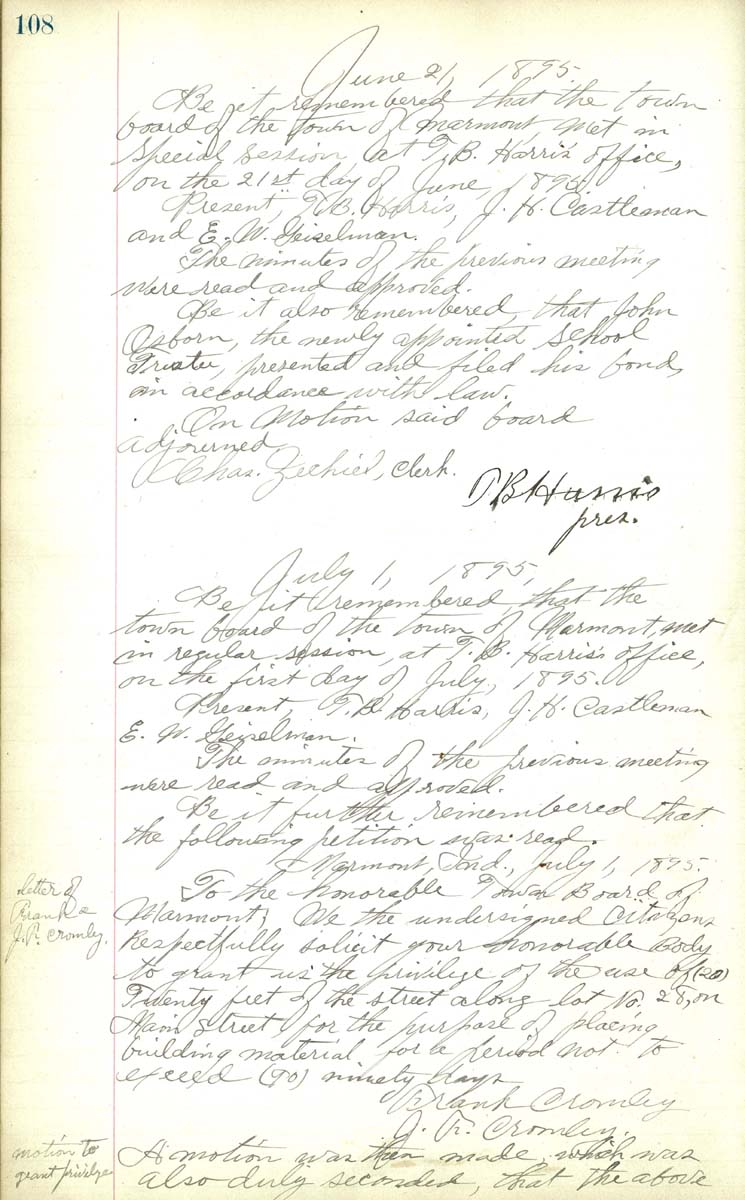 108
June 21, 1895.
Be it remembered that the town
board of the town of Marmont, met in
special session, at T. B. Harris' office,
on the 21st day of June, 1895.
Present, T. B. Harris, J. H. Castleman
and E. W. Geiselman.
The minutes of the previous meeting
were read and approved.
Be it also remembered, that John
Osborn, the newly appointed School
Trustee, presented and filed his bond,
in accordance with law.
On Motion said board
adjourned
Chas. Zechiel, Clerk.
T B Harris
pres.
July 1, 1895,
Be it remembered, that the
town board of the town of Marmont, met
in regular session, at T. B. Harris's office,
on the first day of July, 1895.
Present, T. B. Harris, J. H. Castleman
E. W. Geiselman.
The minutes of the previous meeting
were read and approved.
Be it further remembered that
the following petition was read.
Marmont, Ind., July 1, 1895.
letter of
Frank &
J. R. Cromley.
To the honorable Town Board of
Marmont, We the undersigned Citizens
Respectfully solicit your honorable Body
to grant us the privilige of the use of (20)
Twenty feet of the street along lot No. 28, on
Main Street, for the purpose of placing
building material for a period not to
exceed (90) ninety days
Frank Cromley
J. R. Cromley.
motion to
grant privilege
A motion was then made, which was
also duly seconded, that the above